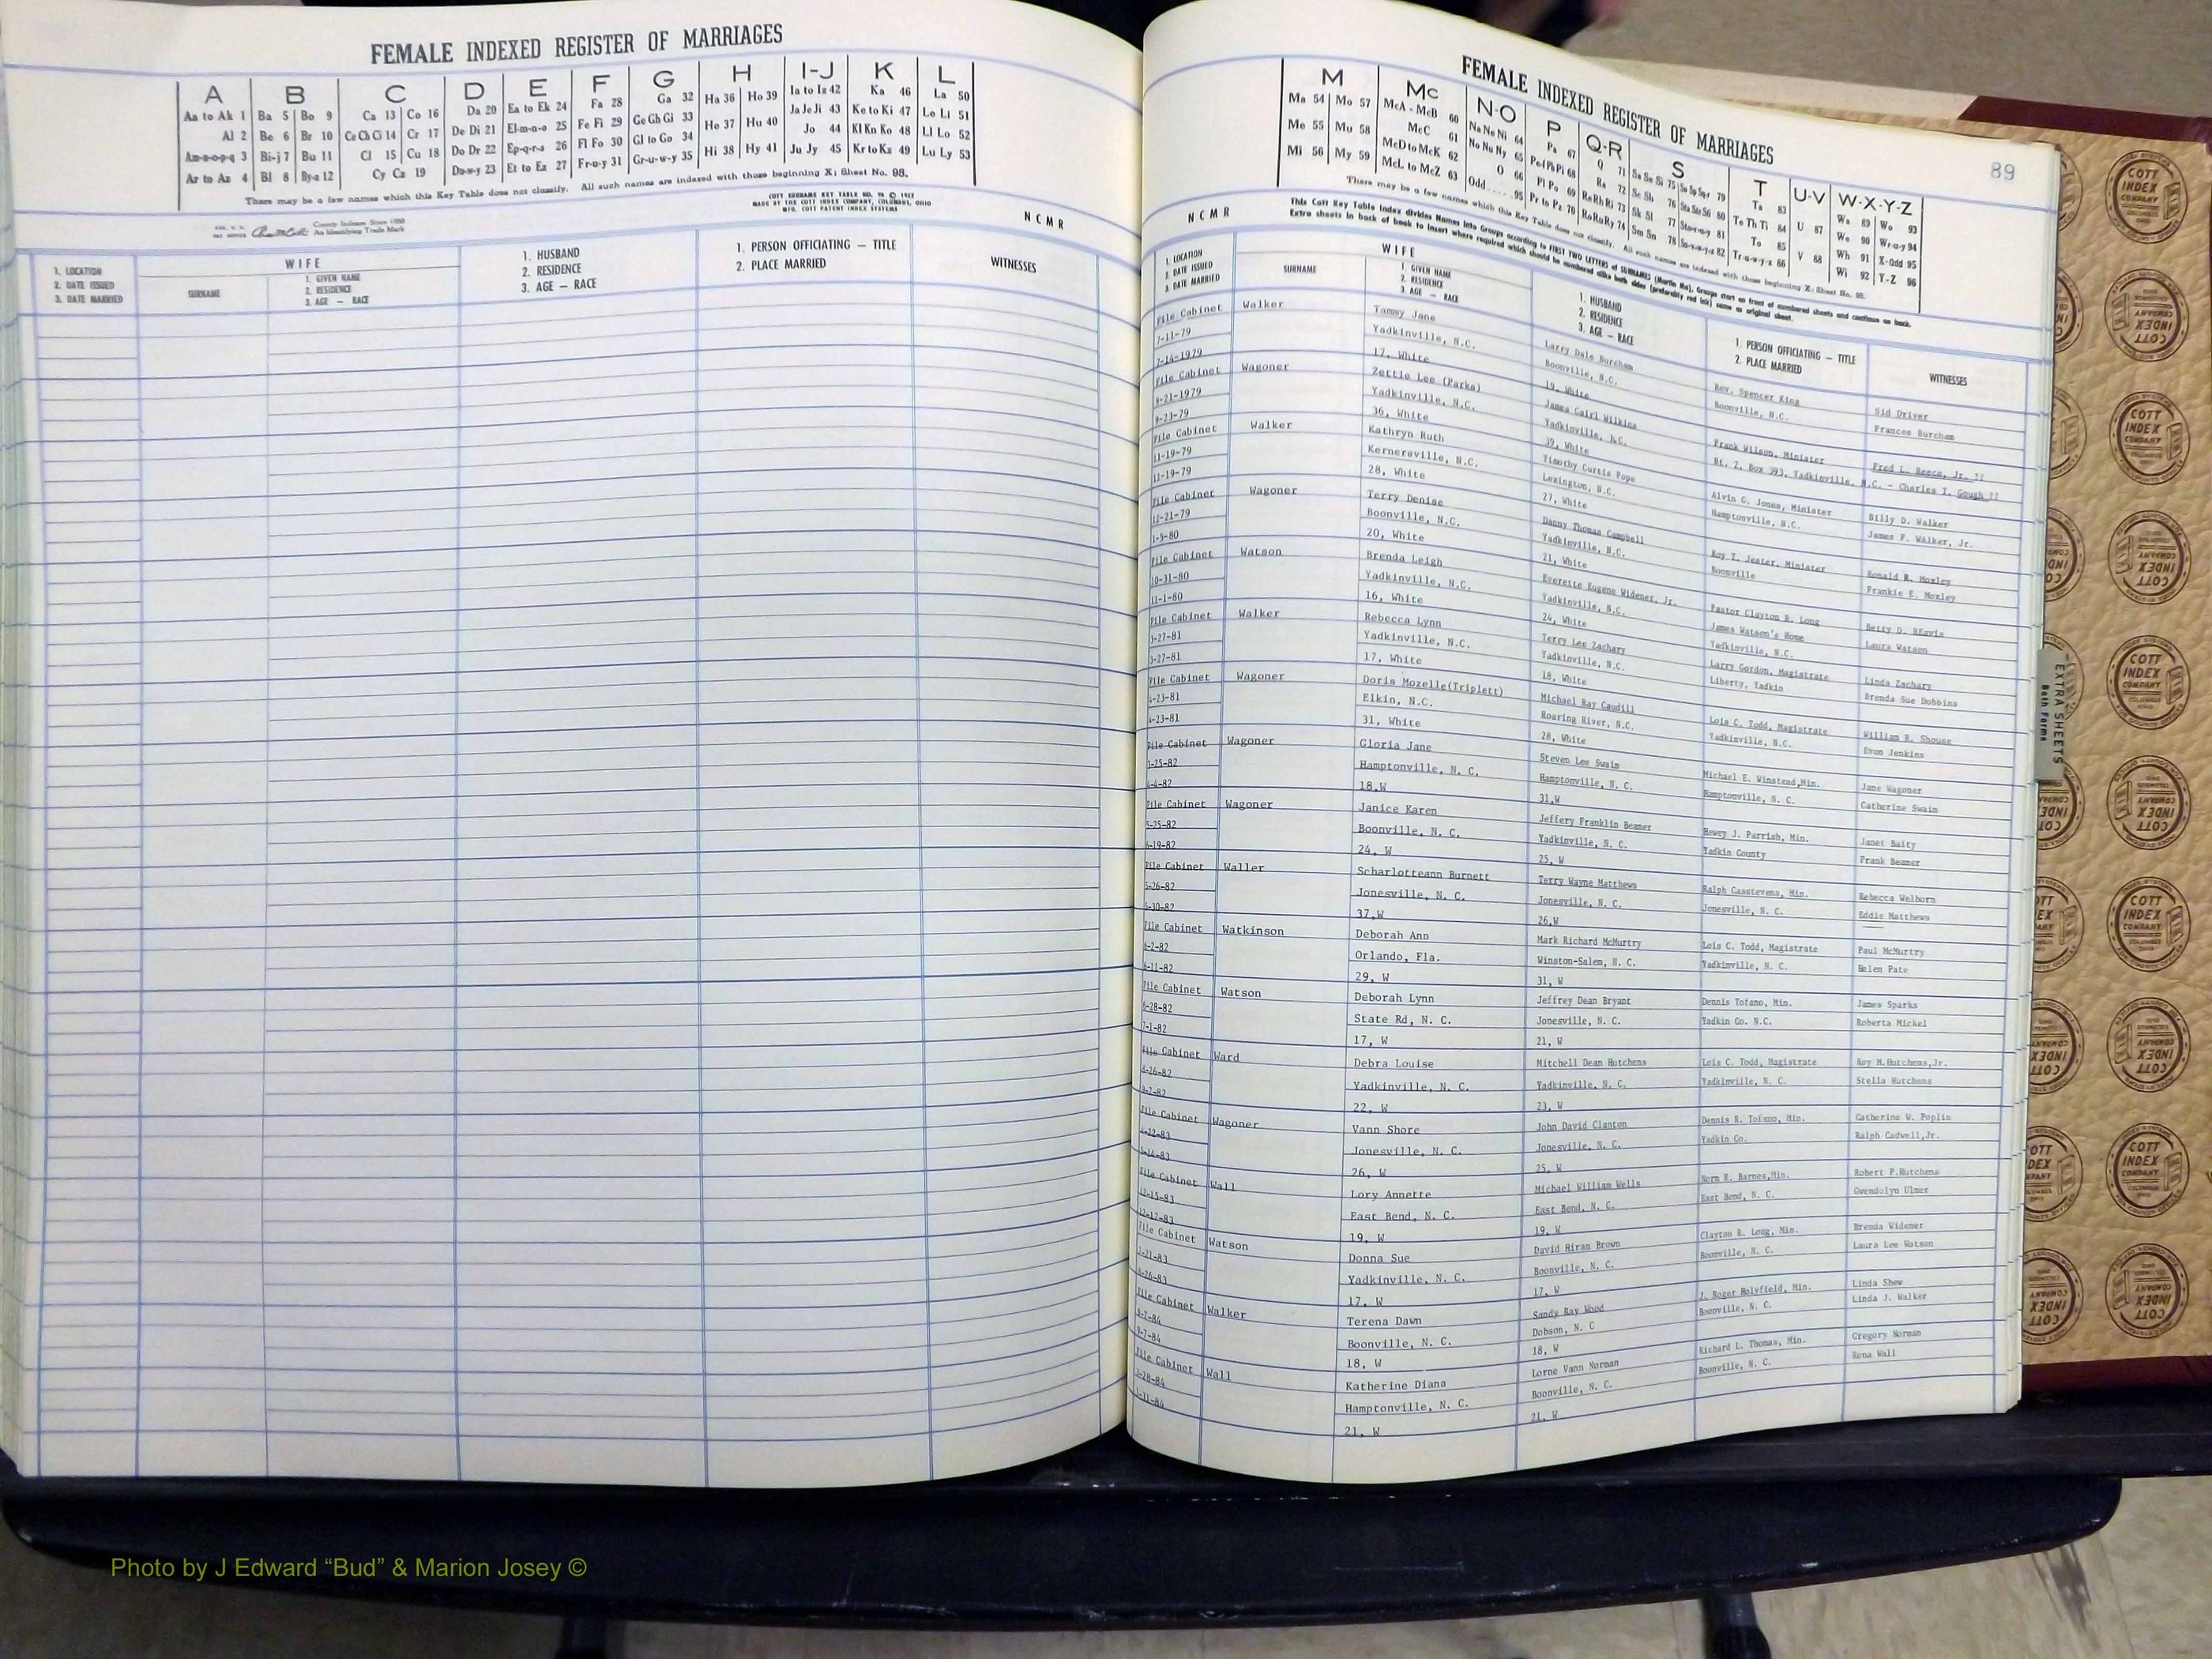 FEMALE INDEXED REGISTER OF MARRIAGES
A B C D E F G H I-J K L
Aa to Ak 1 Ba 5 Bo 9 Ca 13 Co 16 Da 20 Ea to Ek 24 Fa 28 Ga 32 Ha 36 Ho 39 Ia to Iz 42 Ka 46 La 50
Al 2 Be 6 Br 10 Ce Ch Ci 14 Cr 17 De Di 21 El-m-n-o 25 Fe Fi 29 Ge Gh Gi 33 He 37 Hu 40 Ja Je Ji 43 Ke to Ki 47 Le Li 51
Am-n-o-p-q 3 Bi-j 7 Bu 11 Cl 15 Cu 18 Do Dr 22 Ep-q-r-s 26 Fl Fo 30 Gl to Go 34 Hi 38 Hy 41 Jo 44 Kl Kn Ko 48 Ll Lo 52
Ar to Az 4 Bl 8 By-z 12 Cy Cz 19 Du-w-y 23 Et to Ez 27 Fr-u-y 31 Gr-u-w-y 35 Ju Jy 45 Kr to Kz 49 Lu Ly 53
There may be a few names which this Key Table does not classify. All such names are indexed with those beginning X; Sheet No. 98.
County Indexes Since 1888
An Identifying Trade Mark
MADE BY THE COTT INDEX COMPANY, COLUMBUS, OHIO
NCMR
1. LOCATION
2. DATE ISSUED
3. DATE MARRIED
WIFE
SURNAME
1. GIVEN NAME
2. RESIDENCE
3. AGE — RACE
1. HUSBAND
2. RESIDENCE
3. AGE — RACE
1. PERSON OFFICIATING — TITLE
2. PLACE MARRIED
WITNESSES
FEMALE INDEXED REGISTER OF MARRIAGES
89
M Mc N-O P Q-R S T U-V W-X-Y-Z
Ma 54 Mo 57 McA - McB 60 Na Ne Ni 64 Pa 67 Q 71 Sa Se Si 75 79 Ta 83 U 87 Wa 89 Wo 93
Me 55 Mu 58 McC 61 No Nu Ny 65 Pe Pf Ph Pi 68 Ra 72 Sc Sh 76 80 Te Th Ti 84 V 88 We 90 Wr-u-y 94
Mi 56 My 59 McD to McK 62 O 66 Pl Po 69 Re Rh Ri 73 Sk Sl 77 81 To 85 Wh 91 X-Odd 95
McL to McZ 63 Odd 95 Pr to Pz 70 Ro Ru Ry 74 Sm Sn 78 82 Tr-u-w-y-z 86 Wi 92 Y-Z 96
There may be a few names which this Key Table does not classify. All such names are indexed with those beginning X; Sheet No. 98.
This Cott Key Table Index divides Names into Groups according to FIRST TWO LETTERS of SURNAMES (Martin Ma). Groups start on front of numbered sheets and continue on back.
Extra sheets in back of book to insert where required which should be numbered alike both sides (preferably red ink) same as original sheet.
NCMR
1. LOCATION
2. DATE ISSUED
3. DATE MARRIED
WIFE
SURNAME
1. GIVEN NAME
2. RESIDENCE
3. AGE — RACE
1. HUSBAND
2. RESIDENCE
3. AGE — RACE
1. PERSON OFFICIATING — TITLE
2. PLACE MARRIED
WITNESSES
File Cabinet Walker Tammy Jane Larry Dale Burcham Rev. Spencer King Sid Driver
7-11-79 Yadkinville, N.C. Boonville, N.C. Boonville, N.C. Frances Burcham
7-14-1979 17, White 19, White
File Cabinet Wagoner Zettie Lee (Parks) James Cairl Wilkins Frank Wilson, Minister Fred L. Reece, Jr.
9-21-1979 Yadkinville, N.C. Yadkinville, N.C. Rt. 2, Box 393, Yadkinville, N.C. - Charles T. Gough
9-23-79 36, White 39, White
File Cabinet Walker Kathryn Ruth Timothy Curtis Pope Alvin G. Jones, Minister Billy D. Walker
11-19-79 Kernersville, N.C. Lexington, N.C. Hamptonville, N.C. James F. WAlker, Jr.
11-19-79 28, White 27, White
File Cabinet Wagoner Terry Denise Danny Thomas Campbell Roy T. Jester, Minister Ronald B. Moxley
12-21-79 Boonville, N.C. Yadkinville, N.C. Boonville Frankie E. Moxley
1-5-80 20, White 21, White
File Cabinet Watson Brenda Leigh Everette Eugene Widener, Jr. Pastor Clayton B. Long Betty D. REavis
10-31-80 Yadkinville, N.C. Yadkinville, N.C. James Watson's Home Laura Watson
11-1-80 16, White 24, White Yadkinville, N.C.
File Cabinet Walker Rebecca Lynn Terry Lee Zachary Larry Gordon, Magistrate Linda Zachary
3-27-81 Yadkinville, N.C. Yadkinville, N.C. Liberty, Yadkin Brenda Sue Dobbins
3-27-81 17, White 18, White
File Cabinet Wagoner Doris Mozelle(Triplett) Michael Ray Caudill Lois C. Todd, Magistrate William R. Shouse
4-23-81 Elkin, N.C. Roaring River, N.C. Yadkinville, N.C. Evon Jenkins
4-23-81 31, White 28, White
File Cabinet Wagoner Gloria Jane Steven Lee Swaim Michael E. Winstead,Min. Jane Wagoner
3-25-82 Hamptonville, N. C. Hamptonville, N. C. Hamptonville, N. C. Catherine Swaim
4-4-82 18,W 31,W
File Cabinet Wagoner Janice Karen Jeffery Franklin Beamer Hewey J. Parrish, Min. Janet Baity
5-25-82 Boonville, N. C. Yadkinville, N. C. Yadkin County Frank Beamer
6-19-82 24, W 25, W
File Cabinet Waller Scharlotteann Burnett Terry Wayne Matthews Ralph Casstevens, Min. Rebecca Welborn
5-26-82 Jonesville, N. C. Jonesville, N. C. Jonesville, N. C. Eddie Matthews
5-30-82 37,W 26,W
File Cabinet Watkinson Deborah Ann Mark Richard McMurtry Lois C. Todd, Magistrate Paul McMurtry
6-2-82 Orlando, Fla. Winston-Salem, N. C. Yadkinville, N. C. Helen Pate
6-11-82 29, W 31, W
File Cabinet Watson Deborah Lynn Jeffrey Dean Bryant Dennis Tofano, Min. James Sparks
6-28-82 State Rd, N. C. Jonesville, N. C. Yadkin Co. N.C. Roberta Mickel
7-1-82 17, W 21, W
File Cabinet Ward Debra Louise Mitchell Dean Hutchens Lois C. Todd, Magistrate Roy M.Hutchens,Jr.
Yadkinville, N. C. Yadkinville, N. C. Yadkinville, N. C. Stella Hutchens
22, W 23, W
File Cabinet Wagoner Vann Shore John David Clanton Dennis R. Tofano, Min. Catherine W. Poplin
4-22-83 Jonesville, N. C. Jonesville, N. C. Yadkin Co. Ralph Cadwell,Jr.
26, W 25, W
File Cabinet Wall Lory Annette Michael William Wells Norm R. Barnes,Min. Robert P.Hutchens
12-15-83 East Bend, N. C. East Bend, N. C. East Bend, N. C. Gwendolyn Ulmer
19, W 19, W
File Cabinet Watson Donna Sue David Hiram Brown Clayton B. Long, Min. Brenda Widener
Yadkinville, N. C. Boonville, N. C. Boonville, N. C. Laura Lee Watson
17, W 17, W
File Cabinet Walker Terena Dawn Sandy Ray Wood J. Roger Holyfield, Min. Linda Shew
Boonville, N. C. Dobson, N. C Boonville, N. C. Linda J. Walker
9-7-84 18, W 18, W
File Cabinet Wall Katherine Diana Lorne Vann Norman Richard L. Thomas, Min. Gregory Norman
Hamptonville, N. C. Boonville, N. C. Boonville, N. C. Rena Wall
21, W 21, W
EXTRA SHEETS
Both Forms
COTT
INDEX
COMPANY
Photo by J Edward “Bud” & Marion Josey ©